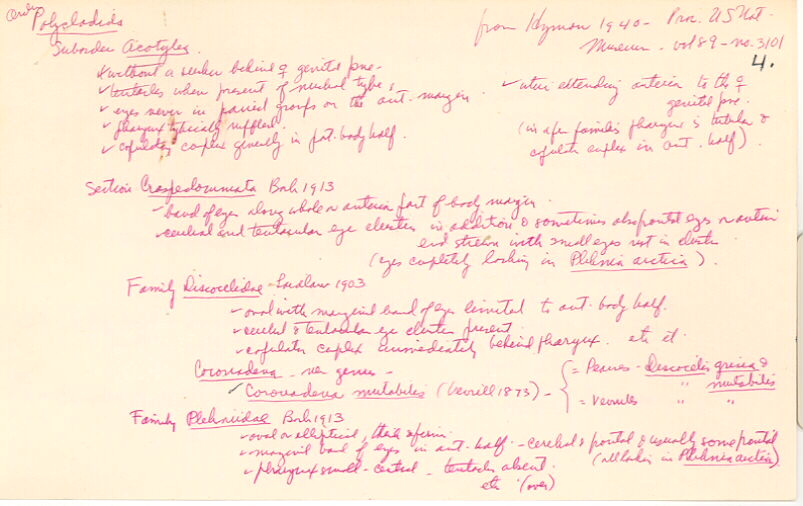 Order Polycladida
from Hyman 1940 - Proc. US Nat.
Museum - vol 89 - no. 3101
4.
Suborder Acotylea.
✓ without a sucker behind ♀ genital pore
✓ tentacles when present of nuchal type;
✓ eyes never in paired groups on the ant. margin
✓ pharynx typically ruffled.
✓ copulatory complex generally in post. body half.
✓ uteri extending anterior to the ♀
genital pore.
(in a few families pharynx is tubular &
copulatory complex in ant. half).
Section Craspedommata Bock 1913
- band of eyes along whole or anterior part of body margin.
- cerebral and tentacular eye clusters in addition & sometimes also frontal eyes or anterior
end strewn with small eyes not in clusters
(eyes completely lacking in Plehnia arctica).
Family Discocelidae - Laidlaw 1903
- oval with marginal band of eyes limited to ant. body half.
- cerebral & tentacular eye clusters present.
- copulatory complex immediately behind pharynx. etc etc.
Coronadena - new genus -
✓ Coronadena mutabilis (Verrill 1873) -
= Pearse - Discocelis grisea &
" mutabilis
= Verrill's " "
Family Plehniidae Bock 1913
- oval or elliptical, thick & firm.
- marginal band of eyes in ant. half - cerebral & frontal & usually some frontal
(all lacking in Plehnia arctica)
- pharynx small - central - tentacles absent.
etc (over)